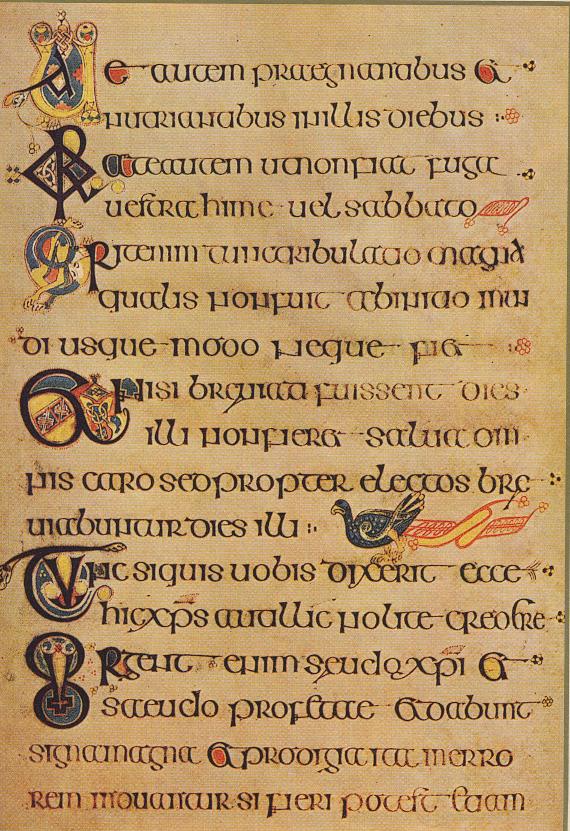 Uae autem praegnantibus et
nutriantibus in illis diebus
Orate autem ut non fiat fuga
uestra hieme uel sabbato
Erit enim tunc tribulatio magna
qualis non fuit ab initio mun
di usque modo neque fiet
Et nisi breuiati fuissent dies
illi non fieret salua om
nis caro sed propter electos bre
uiabuntur dies illi
Tunc si quis uobis dixerit ecce
hic xps aut illic nolite credere
Surgent enim seudo xpi et
saeudo profetae et dabunt
signa magna et prodigia ita in erro
rem inducantur si fieri potest etiam